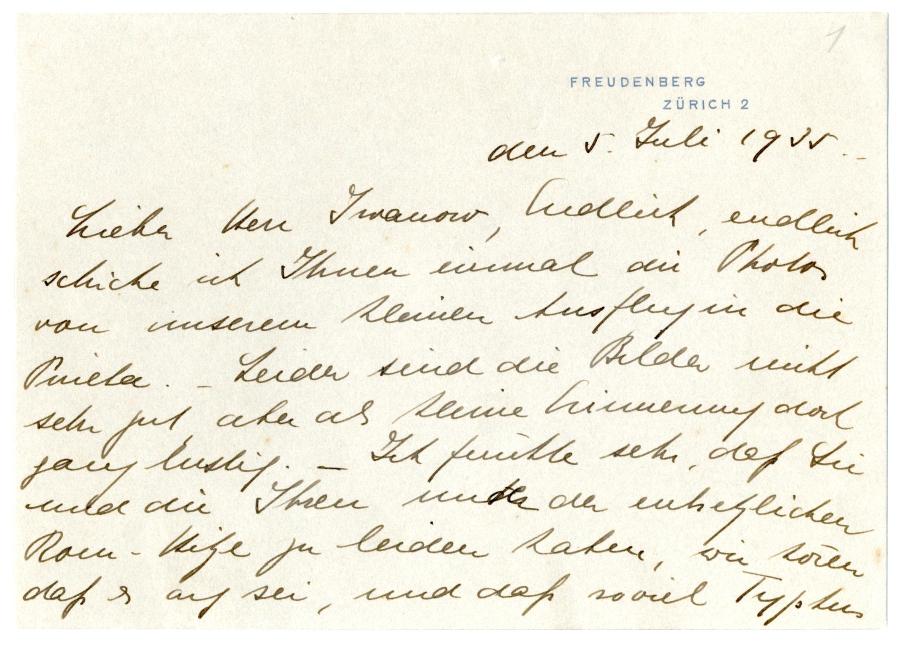 1
FREUDENBERG
ZÜRICH 2
den 5. Juli 1935.
Lieber Herr Iwanow, Endlich, endlich
schicke ich Ihnen einmal die Photos
von unserem kleinen Ausflug in die
Pineta. – Leider sind die Bilder nicht
sehr gut aber als kleine Erinnerung doch
ganz lustig. – Ich fürchte sehr, daß Sie
und die Ihren unter der entsetzlichen
Rom-Hitze zu leiden haben, wir hören
daß es arg sei, und daß soviel Typhus